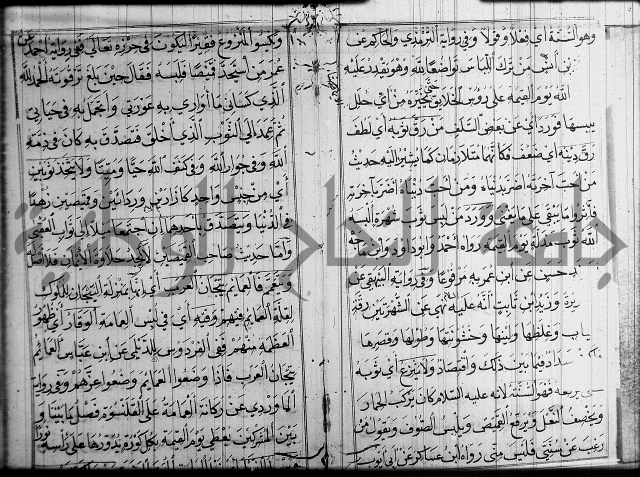 وهو السنة أي فعلا وقولا وفي رواية الترمذي والحاكم عن
بن أنس من ترك اللباس تواضعا لله وهو يقدر عليه
الله يوم القيمة على رؤس الخلايق حتى يخيره من أي حلل
يلبسها فورد أي عن بعض السلف من رق ثوبه أي لطف
رق دينه أي ضعف فكأنهما متلازمان كما يشير اليه حديث
من احب آخرته اضر بدنياه ومن احب دنياه اضر بآخرته
فآثروا ما يبقى على ما يفنى وورد من لبس ثوب شهرة البسه
الله ثوب مذلة يوم القيمة رواه احمد وابو داود وابن ماجه
حسن عن ابن عمر به مرفوعا وفي رواية البيهقي عن
يرة وزيد بن ثابت انه عليه نهى عن الشهرتين رقة
ياب وغلظها ولينها وخشونتها وطولها وقصرها
سداد فيما بين ذلك واقتصاد ولا ينزع أي ثوبه
يرقعه فهو السنة لانه عليه السلام كان يركب الحمار
ويخصف النعل ويرقع القميص ويلبس الصوف ويقول من
رغب عن سنتي فليس مني رواه ابن عساكر عن ابي ايوب
وكسو المنزوع فقيرا ليكون في حرزه تعالى فهو رواية احمد عن
عمر من استجد قميصا فلبسه فقال حين بلغ ترقوته الحمد لله
الذي كساني ما اواري به عورتي واتجمل به في حياتي
ثم عمد الى الثوب الذي اخلق فتصدق به كان في ذمة
الله وفي جوار الله وفي كنف الله حيا وميتا ولا يتخذ ثوبين
أي من جنس واحد كازارين وردائين وقميصين زهدا
في الدنيا ويتصدق باحدهما ان اجتمعا ميلا الى ثواب العقبى
واما حديث صاحب القميصين لا يجد حلاوة الايمان فلا اصل له
ويتعمم فالعمايم تيجان العرب أي انها بمنزلة التيجان للملوك
لقلة العمايم فيهم وفيه أي في لبس العمامة الوقار أي ظهور
العظمة منهم ففي الفردوس للديلمي عن ابن عباس العمايم
تيجان العرب فاذا وضعوا العمايم وضعوا عزهم وفي رواية
الماوردي عن ركانة العمامة على القلنسوة فصل ما بيننا و
بين المشركين يعطى يوم القيمة بكل كورة يدورها على راسه نورا